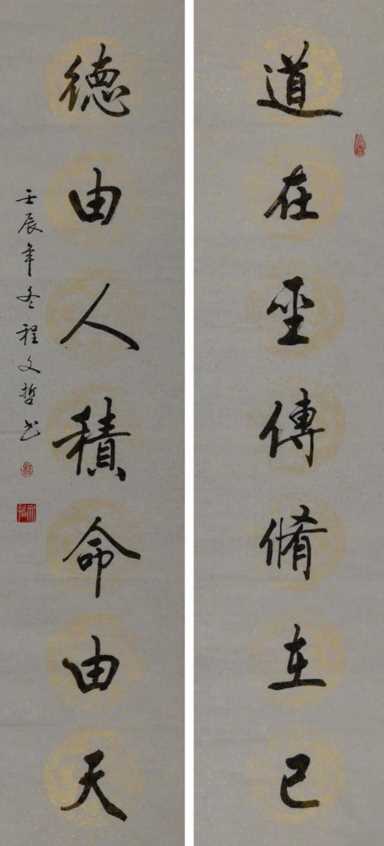 道在聖傳脩在己
德由人積命由天
壬辰年冬程文哲书